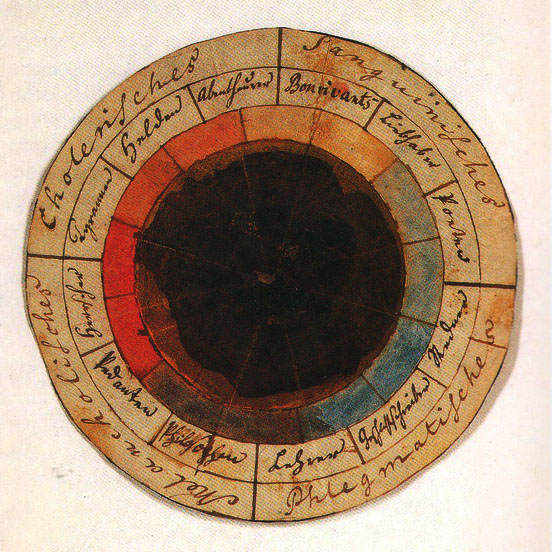 Cholerisches
Tyrannen
Helden
Abentheurer
Sanguinisches
Bonvivants
Liebhaber
Poeten
Phlegmatisches
Redner
Geschichtschreiber
Lehrer
Melancholisches
Philosophen
Pedanten
Herrscher